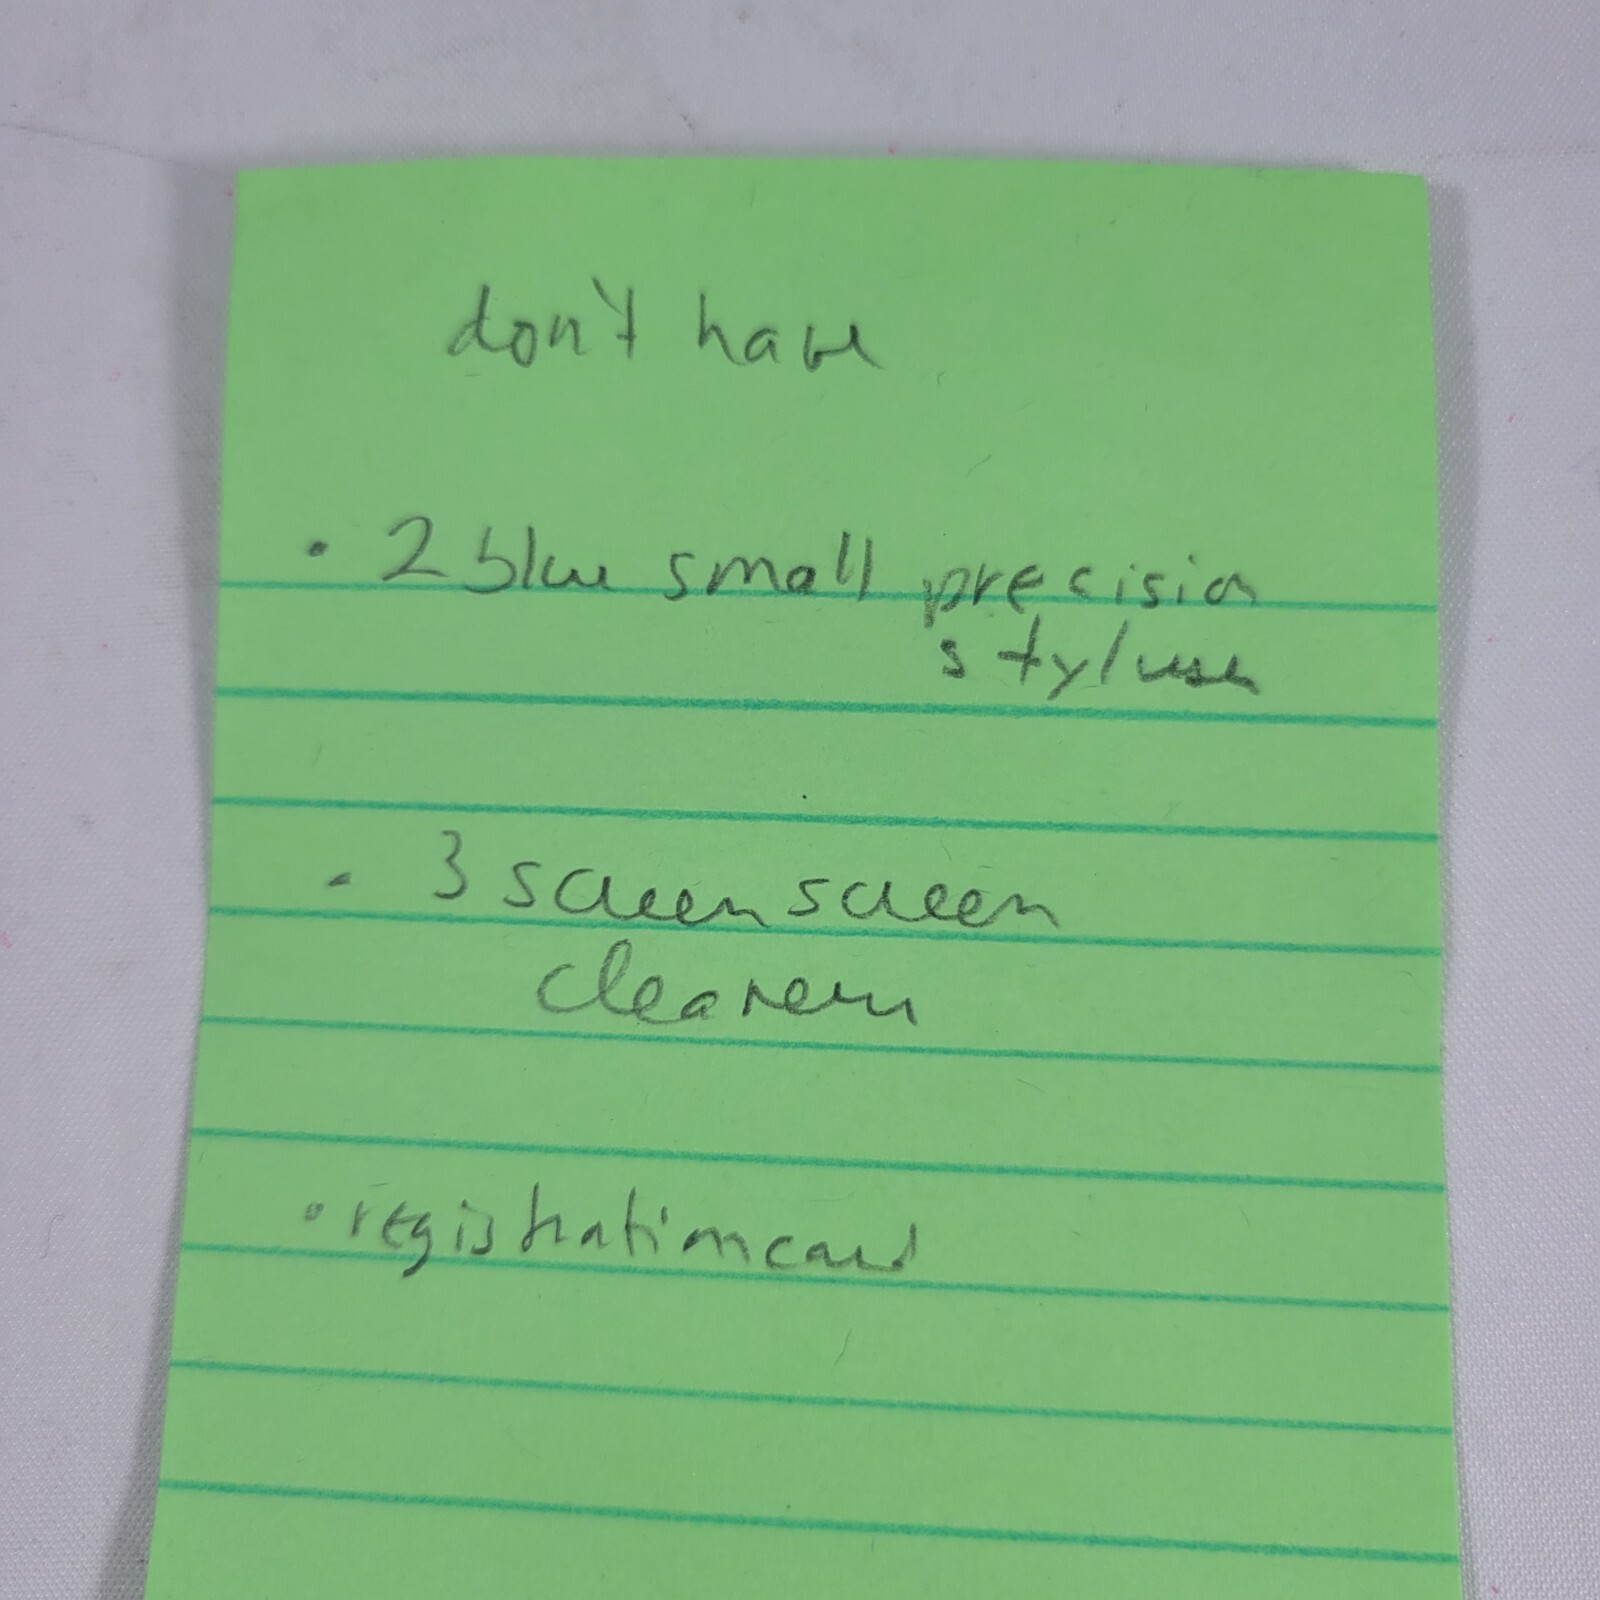 don't have
• 2 blue small precision
styluses
• 3 screen screen
cleaners
• registration card